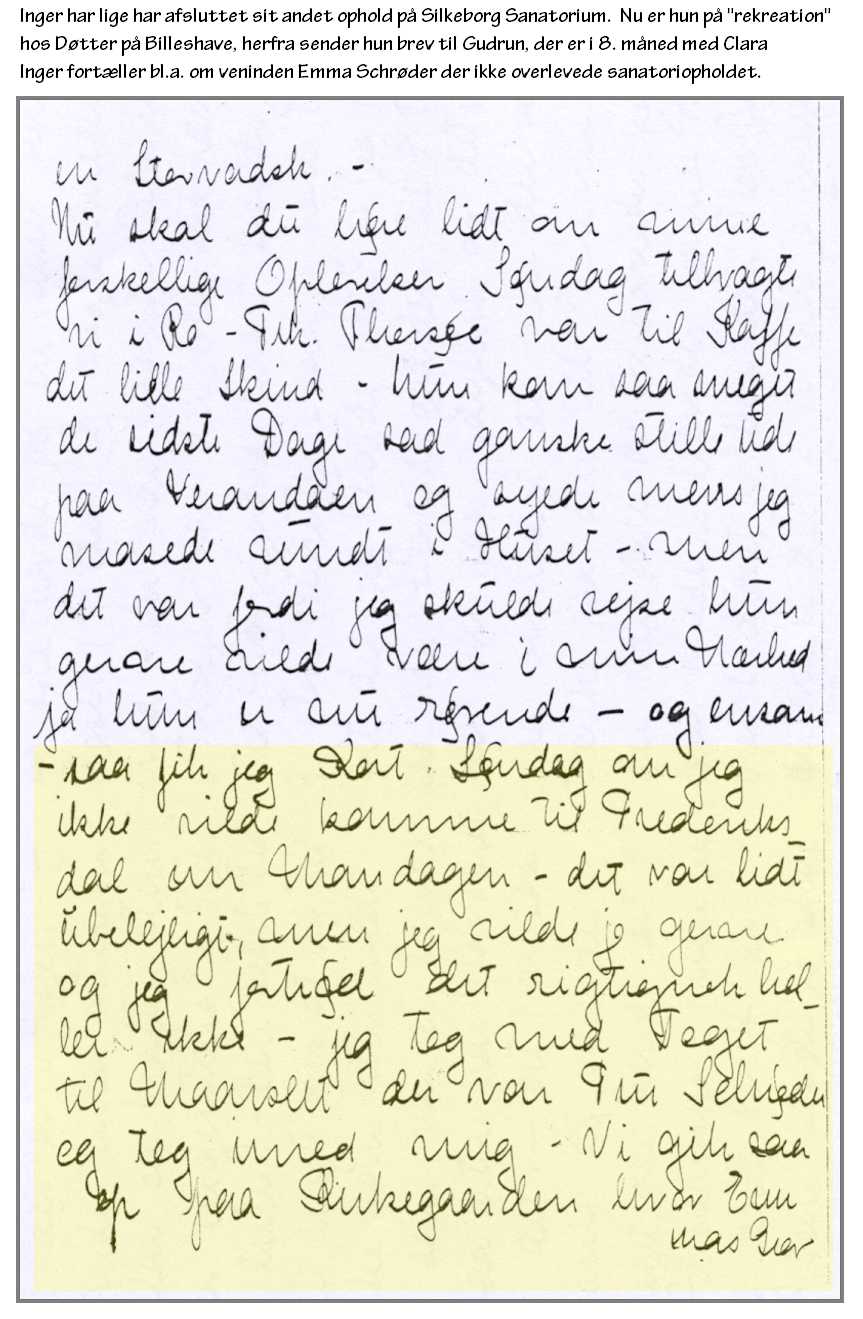 Inger har lige har afsluttet sit andet ophold på Silkeborg Sanatorium. Nu er hun på "rekreation"
hos Døtter på Billeshave, herfra sender hun brev til Gudrun, der er i 8. måned med Clara
Inger fortæller bl.a. om veninden Emma Schrøder der ikke overlevede sanatoriopholdet.
en Storvadsk. -
Nu skal du høre lidt om mine
forskellige Oplevelser Søndag tilbragte
vi i Ro - Frk. Thorsøe var til Kaffe
det lille Skind - hun kom saa meget
de sidste Dage sad ganske stille ude
paa Verandaen og syede mens jeg
masede rundt i Huset - men
det var fordi jeg skulde rejse hun
gerne vilde være i min Nærhed
ja hun er nu rørende - og ensom
- saa fik jeg Kort Søndag om jeg
ikke vilde komme til Frederiks_
dal om Mandagen - det var lidt
ubelejligt, men jeg vilde jo gerne
og jeg fortrød det rigtignok hel_
ler ikke - jeg tog med Toget
til Maarslet der var Fru Schrøder
og tog imod mig - Vi gik saa
op paa Kirkegaarden hvor Em
mas Grav